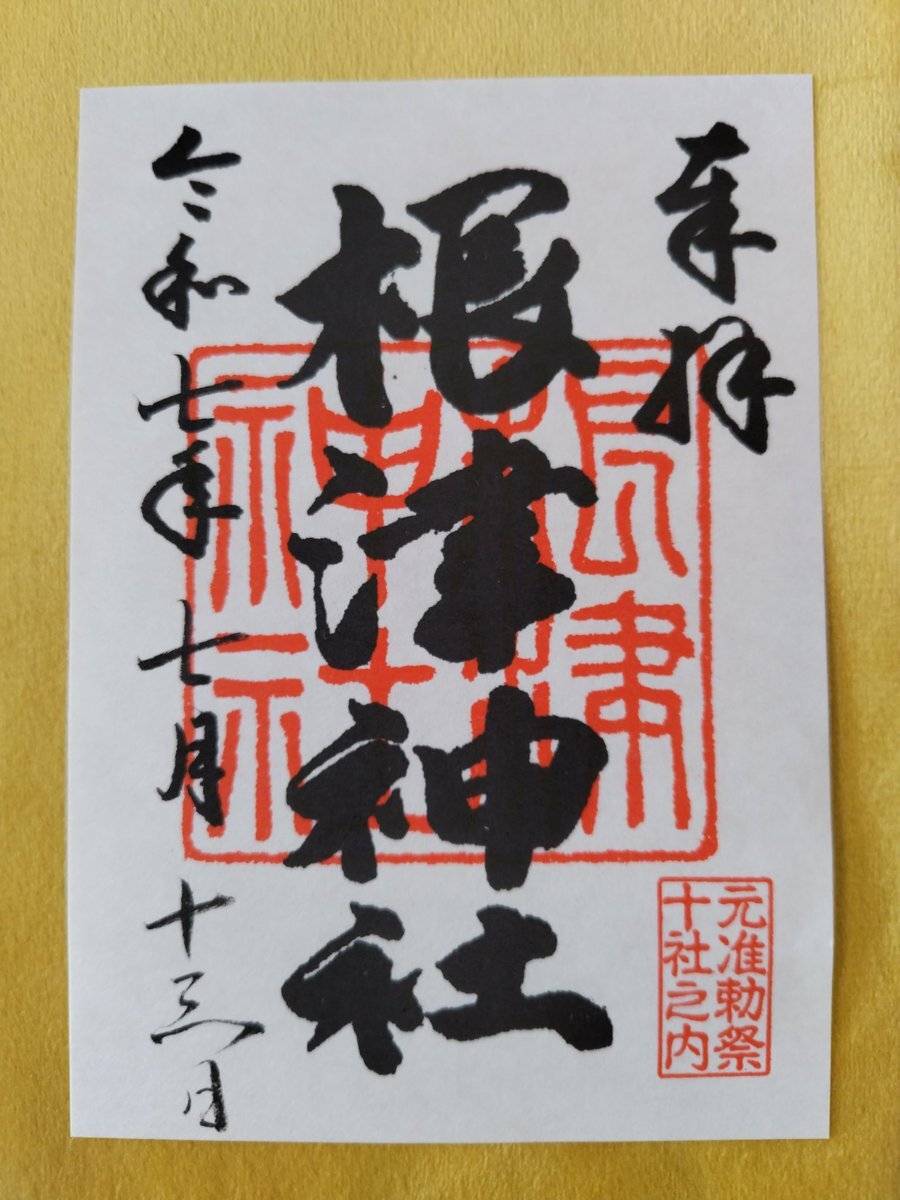 奉拝
根津神社
令和七年七月十三日
根津
神社
元准勅祭
十社之内